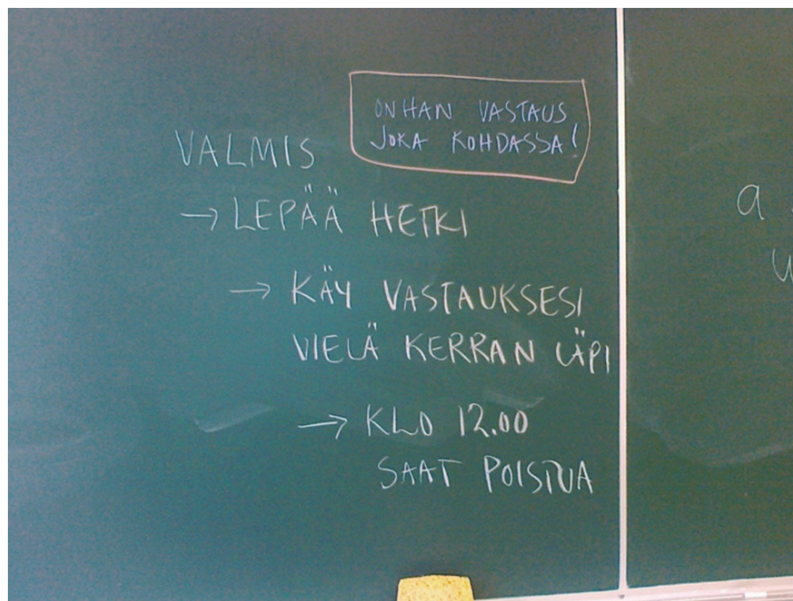 ONHAN VASTAUS
JOKA KOHDASSA!
VALMIS
→ LEPÄÄ HETKI
→ KÄY VASTAUKSESI
VIELÄ KERRAN LÄPI
→ KLO 12.00
SAAT POISTUA
a